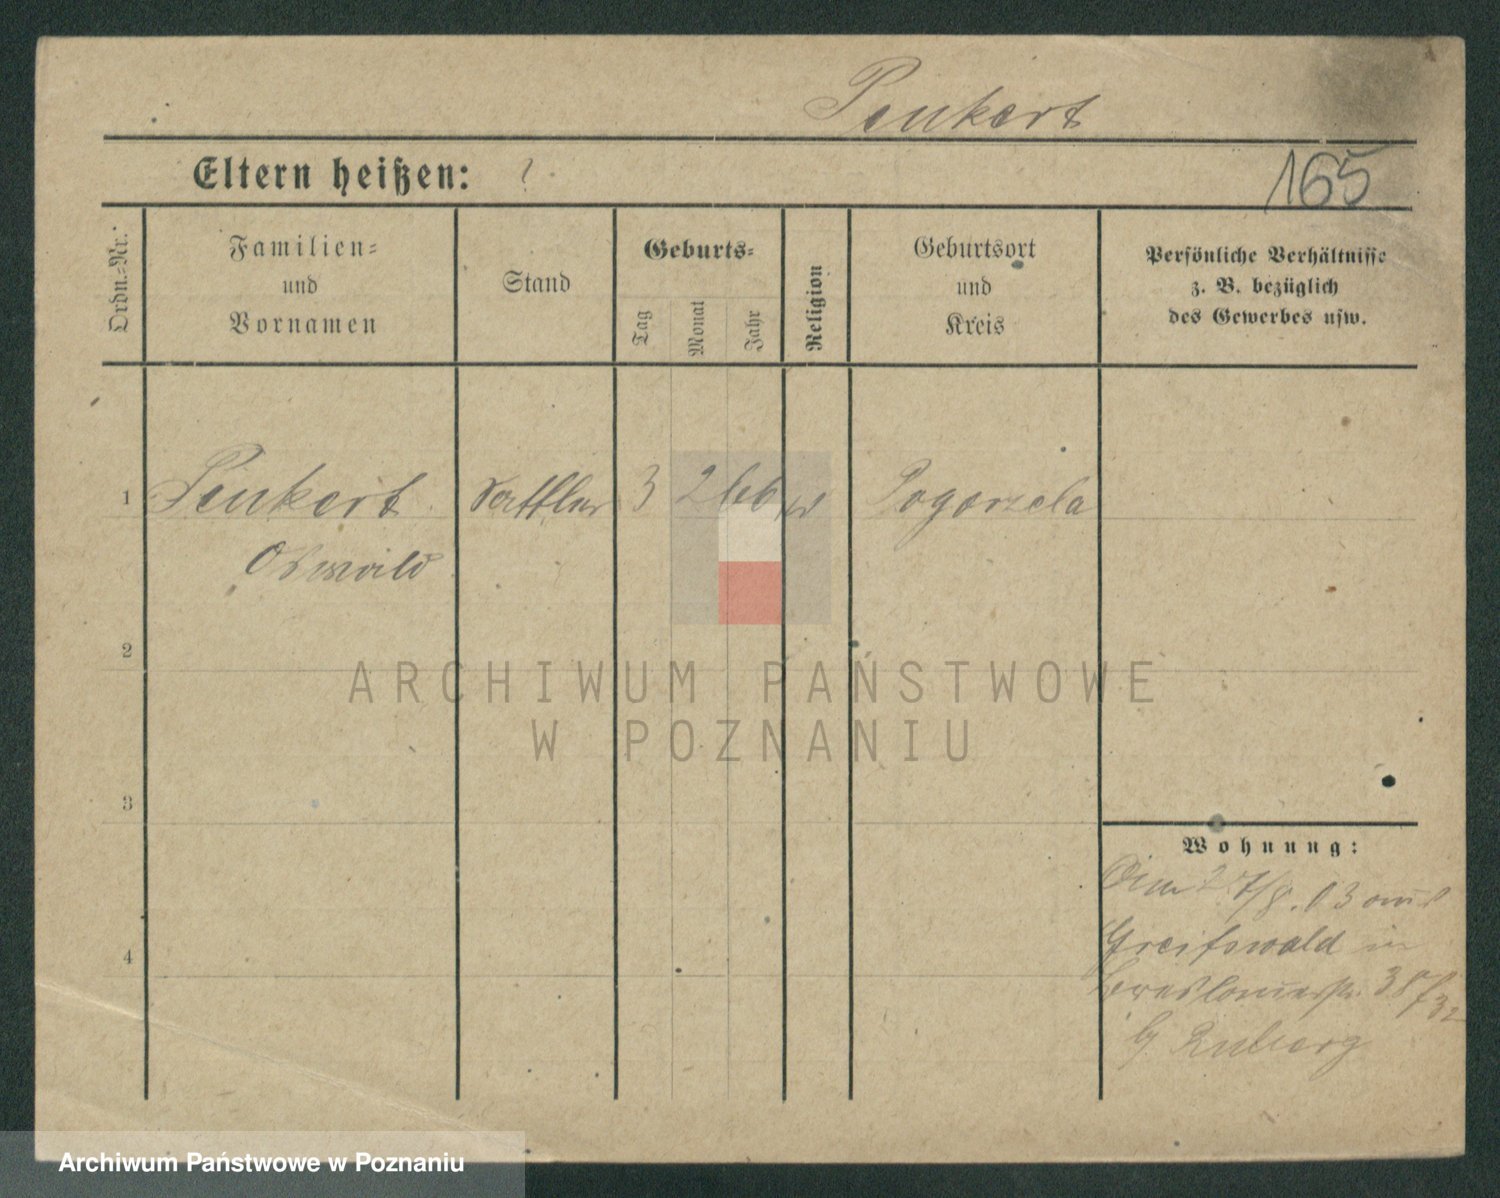 Peukert
Eltern heißen: ?
165
Ordn.-Nr.
Familien-
und
Vornamen
Stand
Geburts-
Tag
Monat
Jahr
Religion
Geburtsort
und
Kreis
Persönliche Verhältnisse
z. B. bezüglich
des Gewerbes usw.
1
Peukert
Sattler
3
2
66
Pogorzela
Oswald
2
3
4
Wohnung:
27/8.03 aus
Greifswald in
Breslauerstr. 38/32
ARCHIWUM PAŃSTWOWE
W POZNANIU
Archiwum Państwowe w Poznaniu